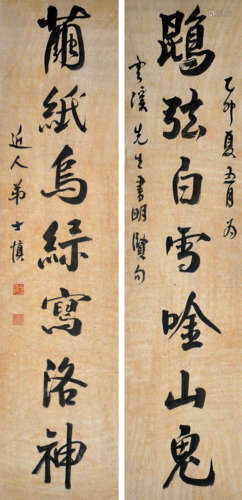 乙卯夏五月為
鵾弦白雪唫山鬼
雲溪先生書明賢句
繭紙烏絲寫洛神
近人弟士慎